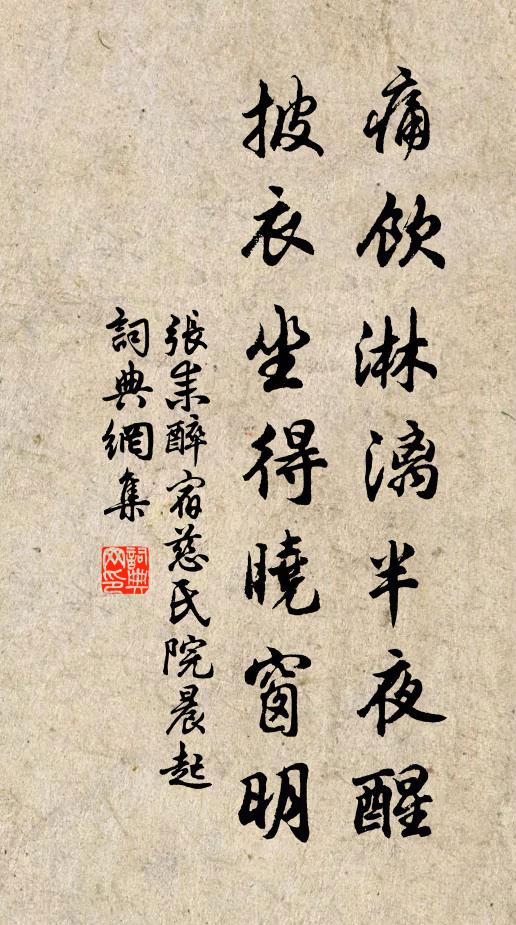 痛飲淋漓半夜醒
披衣坐得曉窗明
張耒醉宿慈氏院晨起
詞典網集
詞典網印